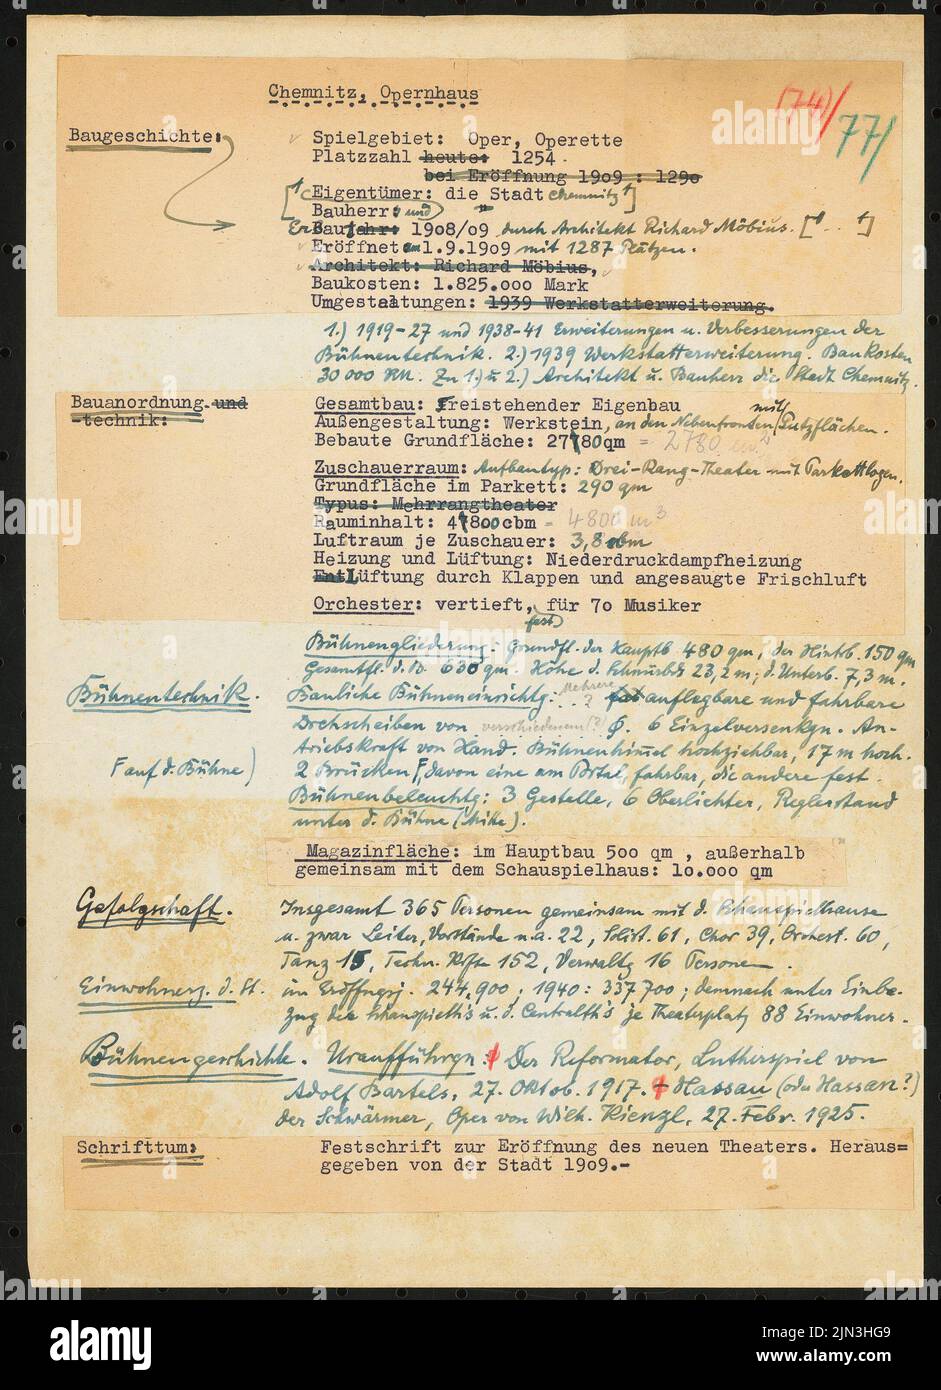 Chemnitz, Opernhaus
(74)/
77/
Baugeschichte:
Spielgebiet: Oper, Operette
Platzzahl heute: 1254.
bei Eröffnung 1909 : 1290
Eigentümer: die Stadt Chemnitz
Bauherr: und "
Erbaut 1908/09 durch Architekt Richard Möbius. [ .. ]
Eröffnet am 1.9.1909 mit 1287 Plätzen.
Architekt: Richard Möbius,
Baukosten: 1.825.000 Mark
Umgestaltungen: 1939 Werkstatterweiterung.
1.) 1919-27 und 1938-41 Erweiterungen u. Verbesserungen der
Bühnentechnik. 2.) 1939 Werkstatterweiterung. Baukosten
30 000 RM. Zu 1.) u 2.) Architekt u. Bauherr die Stadt Chemnitz.
Bauanordnung und
-technik:
Gesamtbau: Freistehender Eigenbau
Außengestaltung: Werkstein, an den Nebenfronten mit Putzflächen.
Bebaute Grundfläche: 2780qm = 2780 m²
Zuschauerraum: Aufbautyp: Drei-Rang-Theater mit Parkettlogen.
Grundfläche im Parkett: 290 qm
Typus: Mehrrangtheater
Rauminhalt: 4800cbm = 4800 m³
Luftraum je Zuschauer: 3,8 cbm
Heizung und Lüftung: Niederdruckdampfheizung
Entlüftung durch Klappen und angesaugte Frischluft
Orchester: vertieft, für 70 Musiker
fest
Bühnengliederung: Grundfl. der Hauptb 480 qm, der Hintb. 150 qm
Gesamtfl. d. B. 630 qm. Höhe d. Schnürbds 23,2 m; d. Unterb. 7,3 m.
Bühnentechnik.
Bauliche Bühneneinrichtg: Mehrere ..? auflegbare und fahrbare
Drehscheiben von verschiedenem (?) Ø. 6 Einzelversenkgn. An-
triebskraft von Hand. Bühnenhimmel hochziehbar, 17 m hoch.
F auf d. Bühne)
2 Brücken F, davon eine am Portal, fahrbar, die andere fest.
Bühnenbeleuchtg: 3 Gestelle, 6 Oberlichter, Reglerstand
unter d. Bühne (Mitte).
Magazinfläche: im Hauptbau 500 qm , außerhalb
gemeinsam mit dem Schauspielhaus: 10.000 qm
Gefolgschaft.
Insgesamt 365 Personen gemeinsam mit d. Schauspielhause
u. zwar Leiter, Vorstände u.a. 22, Solist. 61, Chor 39, Orchest. 60,
Tanz 15, Techn. Kräfte 152, Verwaltg 16 Personen.
Einwohnerz. d. St.
im Eröffngsj. 244,900; 1940: 337700; demnach unter Einbe-
zug des Schauspielh's u. d. Centralth's je Theaterplatz 88 Einwohner.
Bühnengeschichte.
Uraufführgn: Der Reformator, Lutherspiel von
Adolf Bartels, 27. Oktob. 1917. + Hassan (oder Hassan?)
der Schwärmer, Oper von Wilh. Kienzl, 27. Febr. 1925.
Schrifttum:
Festschrift zur Eröffnung des neuen Theaters. Heraus=
gegeben von der Stadt 1909.-
alamy
Image ID: 2JN3HG9
www.alamy.com